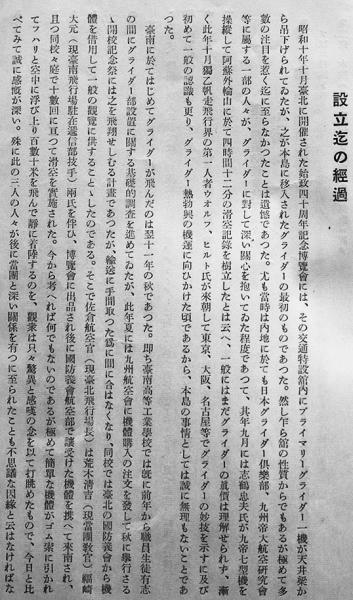 設立迄の經過
昭和十年十月臺北に開催された始政四十周年記念博覽會には、その交通特設館内にプライマリーグライダー一機が天井梁か
ら吊下げられてゐたが、之が本島に移入されたグライダーの最初のものであつた。然し乍ら館の性質からでもあるが極めて多
數の注目を惹く迄に至らなかつたことは遺憾であつた。尤も當時は内地に於ても日本グライダー倶樂部 九州帝大航空研究會
等に屬する一部の人々が、グライダーに對して深い關心を抱いてゐた程度であつて、其年九月には志鶴忠夫氏が九帝七型機を
操縱して阿蘇外輪山に於て四時間十二分の滑空記錄を樹立したとは云へ、一般にはまだグライダーの眞價は理解せられず、漸
く此年十月獨乙帆走飛行界の第一人者ウオルフ、ヒルト氏が來朝して東京、大阪、名古屋等でグライダーの妙技を示すに及び
初めて一般の認識も更り、グライダー熱勃興の機運に向ひかけた頃であるから、本島の事情としては誠に無理もないことであ
つた。
臺南に於てはじめてグライダーが飛んだのは翌十一年の秋であつた。即ち臺南高等工業學校では旣に前年から職員生徒有志
の間にグライダー部設置に關する基礎的調査を進めてゐたが、此年夏には九州航空會に機體購入の注文を發して秋に擧行さる
ゝ開校記念祭には之を飛翔せしむる計畫であつたが、輸送に手間取つた爲に間に合はなくなり、同校では臺北の國防義會から機
體を借用して一般の觀覽に供すること〻したのである。そこで佐倉航空官（現臺北飛行場長）は荒木清吉（現當團敎官）
大元（現臺南飛行場駐在遞信部技手）兩氏を伴ひ、博覽會に出品され後に國防義會航空部で讓受けた機體を携へて來南され、
且つ同校々庭で十數回に亘つて滑空を實施された。今から考へれば何でもないのであるが極めて簡單な機體がゴム索に引かれ
てフハリと空中に浮び上り百數十米を飛んで靜に着陸するのを、觀衆は只々驚異と感嘆の念を以て打眺めたもので、今日と比
べてみて誠に感慨が深い。殊に此の三人の人々が後に當團と深い關係を有つに至られたことも不思議な因緣と云はなければな